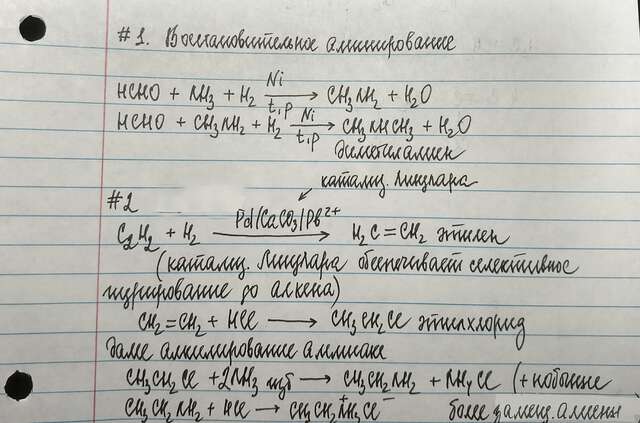 #1. Восстановительное аминирование
HCHO + NH₃ + H₂ —Ni/t, p→ CH₃NH₂ + H₂O
HCHO + CH₃NH₂ + H₂ —Ni/t, p→ CH₃NHCH₃ + H₂O
Диметиламин
катализ. Линдлара
#2
C₂H₂ + H₂ —Pd/CaCO₃/Pb²⁺→ H₂C=CH₂ этилен
(катализ. Линдлара обеспечивает селективное
гидрирование до алкена)
CH₂=CH₂ + HCl → CH₃CH₂Cl этилхлорид
Далее алкилирование аммиака
CH₃CH₂Cl + 2NH₃ изб → CH₃CH₂NH₂ + NH₄Cl (+ побочные
CH₃CH₂NH₂ + HCl → CH₃CH₂⁺NH₃Cl⁻ более замещ. амины